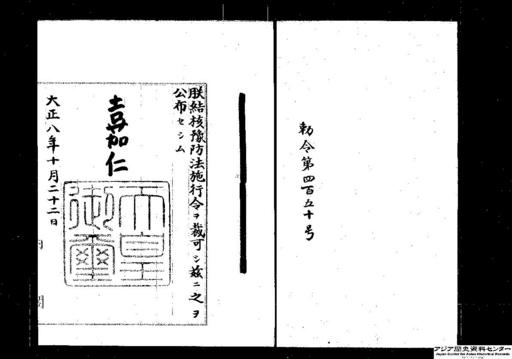 勅令第四百五十号
朕結核豫防法施行令ヲ裁可シ玆ニ之ヲ
公布セシム
嘉仁
天皇
御璽
大正八年十月二十二日
内
閣
アジア歴史資料センター
Japan Center for Asian Historical Records